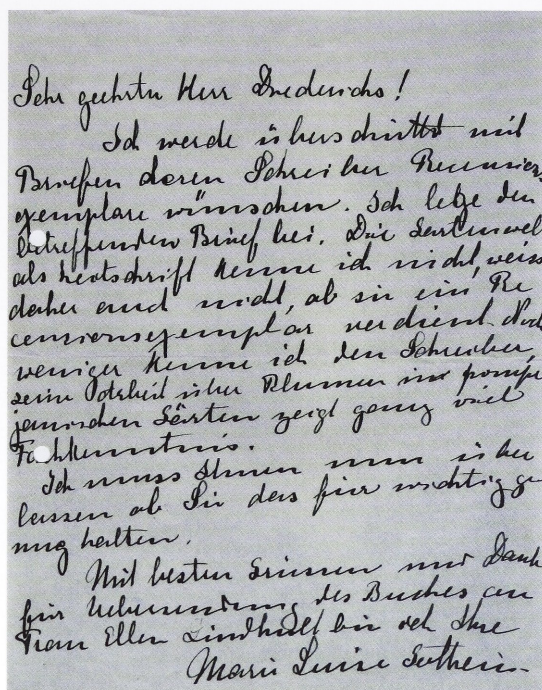 Sehr geehrter Herr Diederichs!
Ich werde überschüttet mit
Briefen deren Schreiber Recensions
exemplare wünschen. Ich lege den
betreffenden Brief bei. Die Gartenwelt
als Zeitschrift kenne ich nicht, weiss
daher auch nicht, ob sie ein Re
censionsexemplar verdient. Noch
weniger kenne ich den Schreiber,
seine Arbeit über Blumen im pompe
janischen Gärten zeigt ganz viel
Fachkenntnis.
Ich muss Ihnen nun über
lassen ob Sie das für wichtig ge
nug halten.
Mit besten Grüssen und Dank
für Uebersendung des Buches an
Frau Ellen bin ich Ihre
Marie Luise Gothein